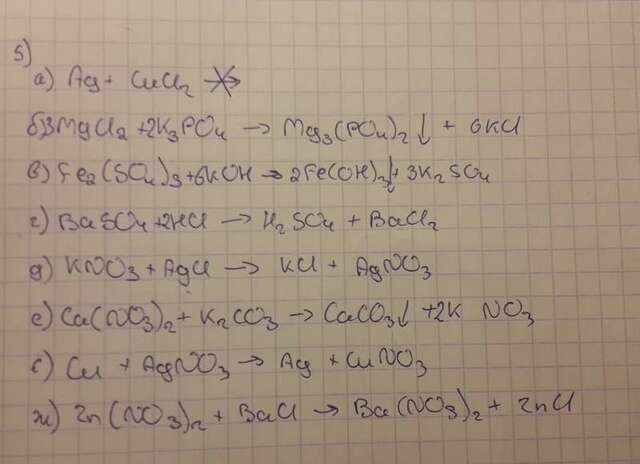 5)
а) Ag + CuCl2 ↛
б) 3MgCl2 + 2K3PO4 → Mg3(PO4)2↓ + 6KCl
в) Fe2(SO4)3 + 6KOH → 2Fe(OH)3↓ + 3K2SO4
г) BaSO4 + 2HCl → H2SO4 + BaCl2
д) KNO3 + AgCl → KCl + AgNO3
е) Ca(NO3)2 + K2CO3 → CaCO3↓ + 2K NO3
с) Cu + AgNO3 → Ag + CuNO3
ж) Zn(NO3)2 + BaCl → Ba(NO3)2 + ZnCl